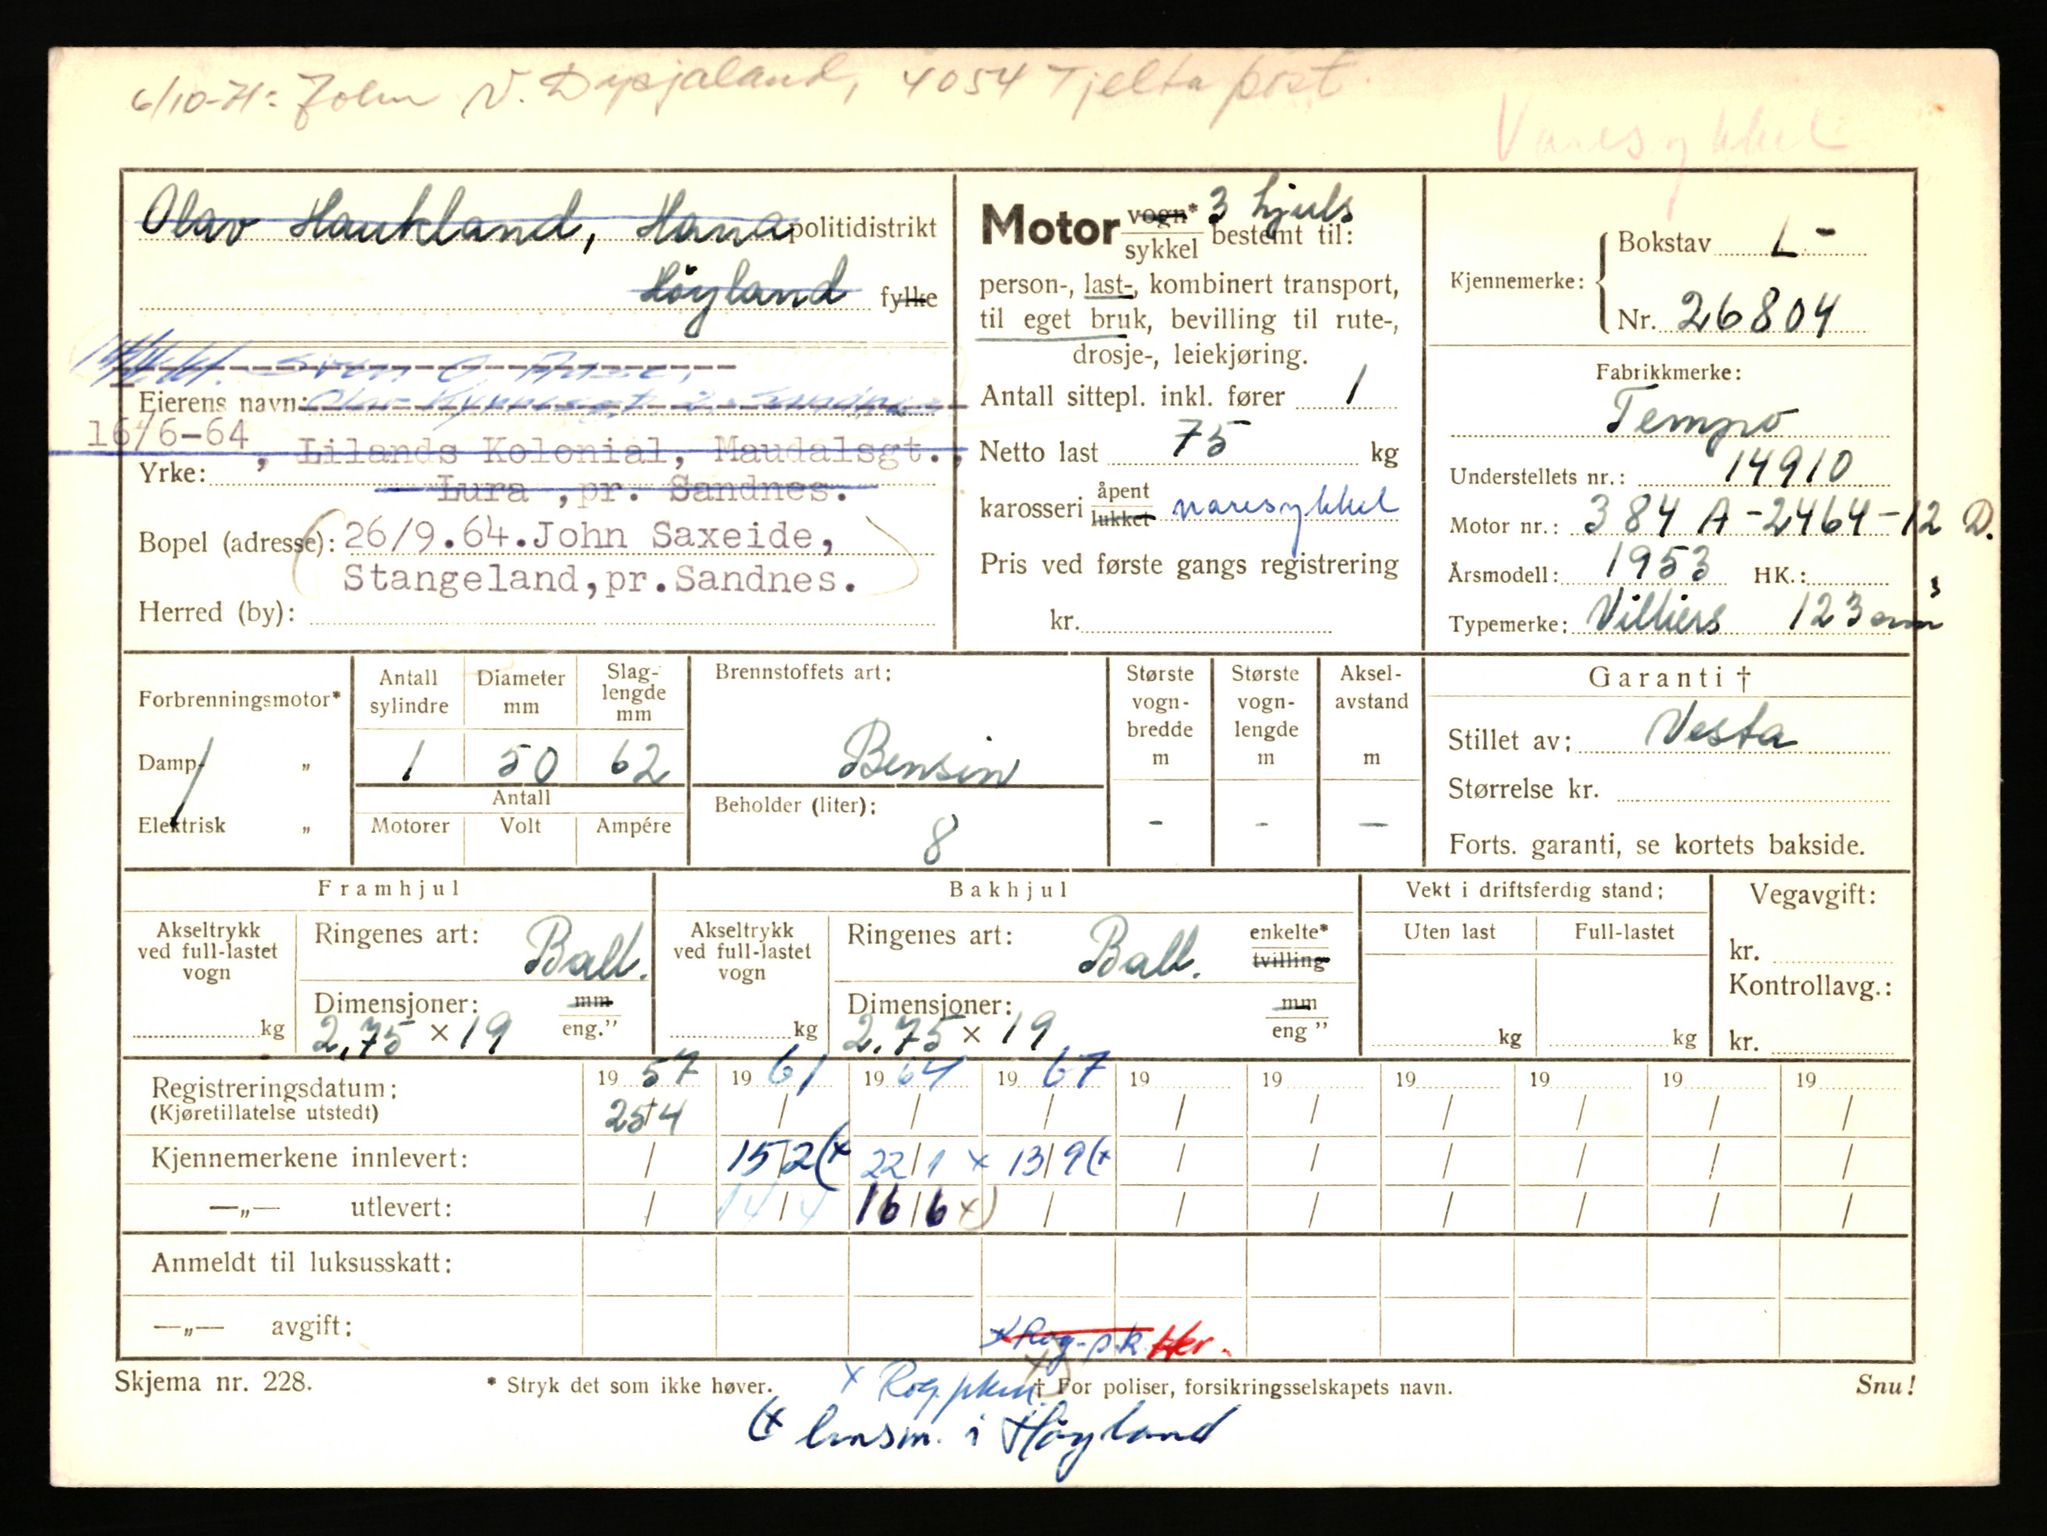 6/10-71: John N. Dysjaland, 4054 Tjelta post.
Varesykkel
Olav Haukland, Hana politidistrikt
Høyland fylke
Eierens navn:
16/6-64, Lilands Kolonial, Maudalsgt.,
Yrke: Lura ,pr. Sandnes.
Bopel (adresse): 26/9.64.John Saxeide,
Stangeland,pr.Sandnes.
Herred (by):
Motor vogn* sykkel 3 hjuls bestemt til:
person-, last-, kombinert transport,
til eget bruk, bevilling til rute-,
drosje-, leiekjøring.
Antall sittepl. inkl. fører 1
Netto last 75 kg
karosseri åpent lukket varesykkel
Pris ved første gangs registrering
kr.
Kjennemerke: Bokstav L-
Nr. 26804
Fabrikkmerke:
Tempo
Understellets nr.: 14910
Motor nr.: 384 A-2464-12 D.
Årsmodell: 1953 HK.:
Typemerke: Villiers 123 cm³
Forbrenningsmotor*
Damp- „
Elektrisk „
Antall sylindre 1
Diameter mm 50
Slag-lengde mm 62
Antall
Motorer Volt Ampére
Brennstoffets art:
Bensin
Beholder (liter):
8
Største vogn-bredde m -
Største vogn-lengde m -
Aksel-avstand m -
Garanti †
Stillet av: Vesta
Størrelse kr.
Forts. garanti, se kortets bakside.
Framhjul
Akseltrykk ved full-lastet vogn kg
Ringenes art: Ball.
Dimensjoner: mm eng."
2,75 × 19
Bakhjul
Akseltrykk ved full-lastet vogn kg
Ringenes art: Ball. enkelte* tvilling
Dimensjoner: mm eng "
2.75 × 19
Vekt i driftsferdig stand:
Uten last Full-lastet
kg kg
Vegavgift:
kr.
Kontrollavg.:
kr.
Registreringsdatum: 19 57 19 61 19 64 19 67 19 19 19 19 19 19
(Kjøretillatelse utstedt) 25/4 / / / / / / / / /
Kjennemerkene innlevert: / 15/2 (x 22/1 x 13/9 (x / / / / / /
—„— utlevert: / 14/4 16/6 x) / / / / / / /
Anmeldt til luksusskatt:
—„— avgift:
x Rog.p.k. Her.
Skjema nr. 228.
* Stryk det som ikke høver.
x Rog.
† For poliser, forsikringsselskapets navn.
Snu!
(x lensm. i Høyland